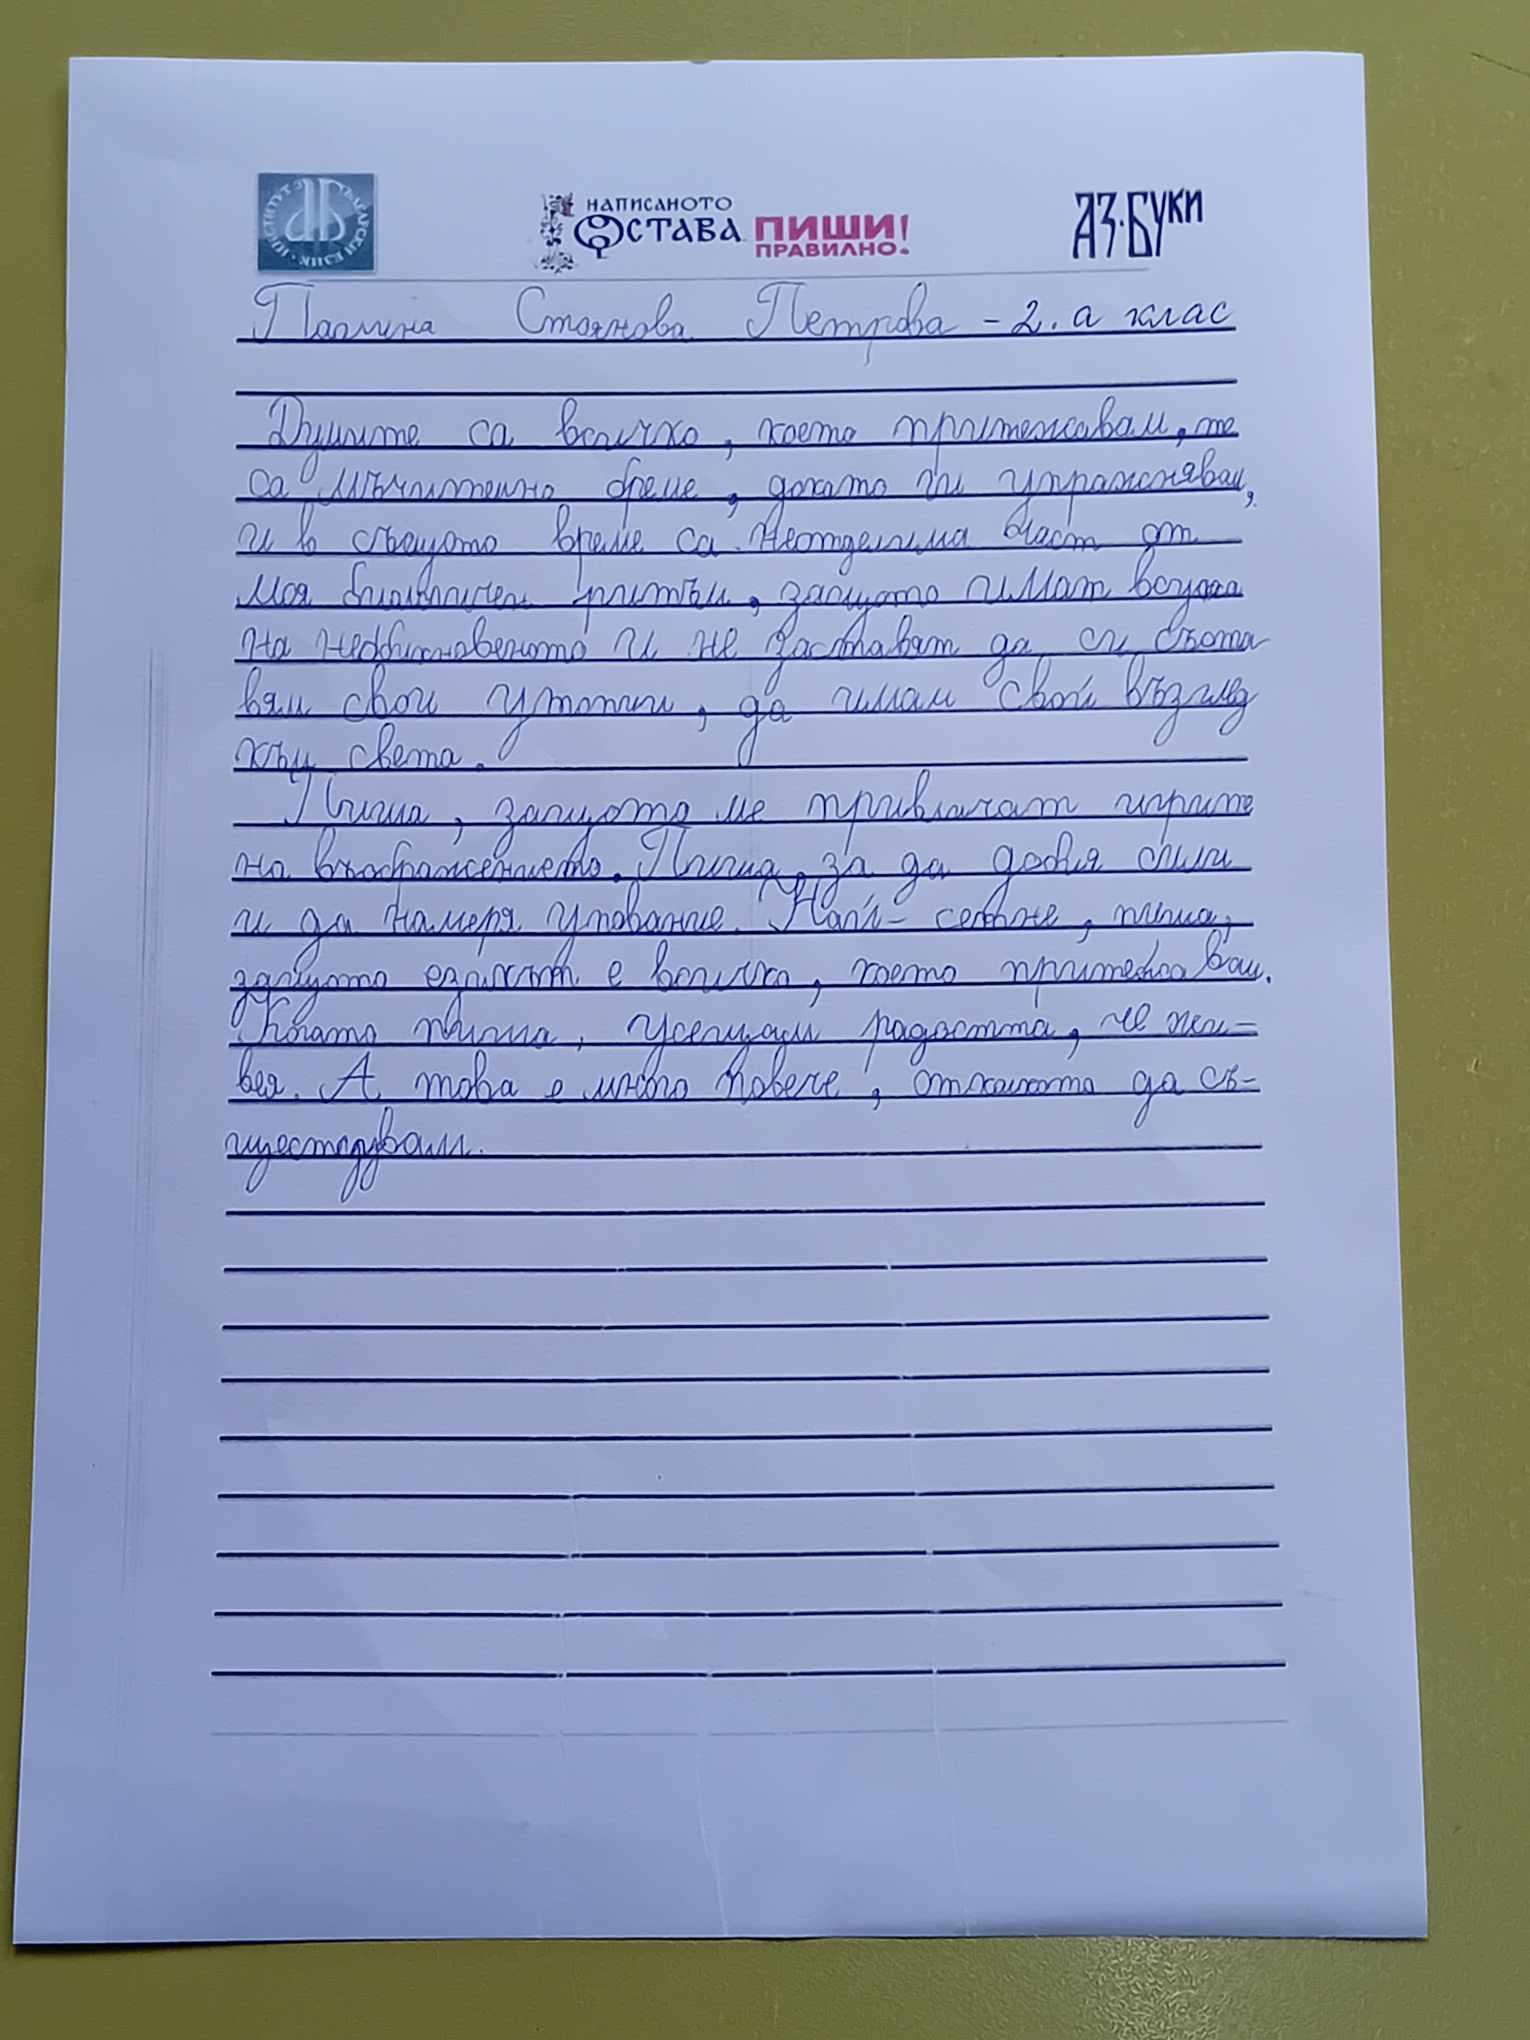 ИНСТИТУТ ЗА БЪЛГАРСКИ ЕЗИК
НАПИСАНОТО ОСТАВА. ПИШИ ПРАВИЛНО!
АЗ·БУКИ
Паолина Стоянова Петрова - 2. а клас
Думите са всичко, което притежавам, те
са мъчително бреме, докато ги упражнявам,
и в същото време са неотделима част от
моя биологичен ритъм, защото имат вкуса
на необикновеното и не заставят да си съста
вям свои утопии, да имам свой възглед
към света.
Пиша, защото ме привличат игрите
на въображението. Пиша, за да добия сили
и да намеря упование. Най-сетне, пиша,
защото езикът е всичко, което притежавам.
Когато пиша, усещам радостта, че жи-
вея. А това е много повече, отколкото да съ-
ществувам.